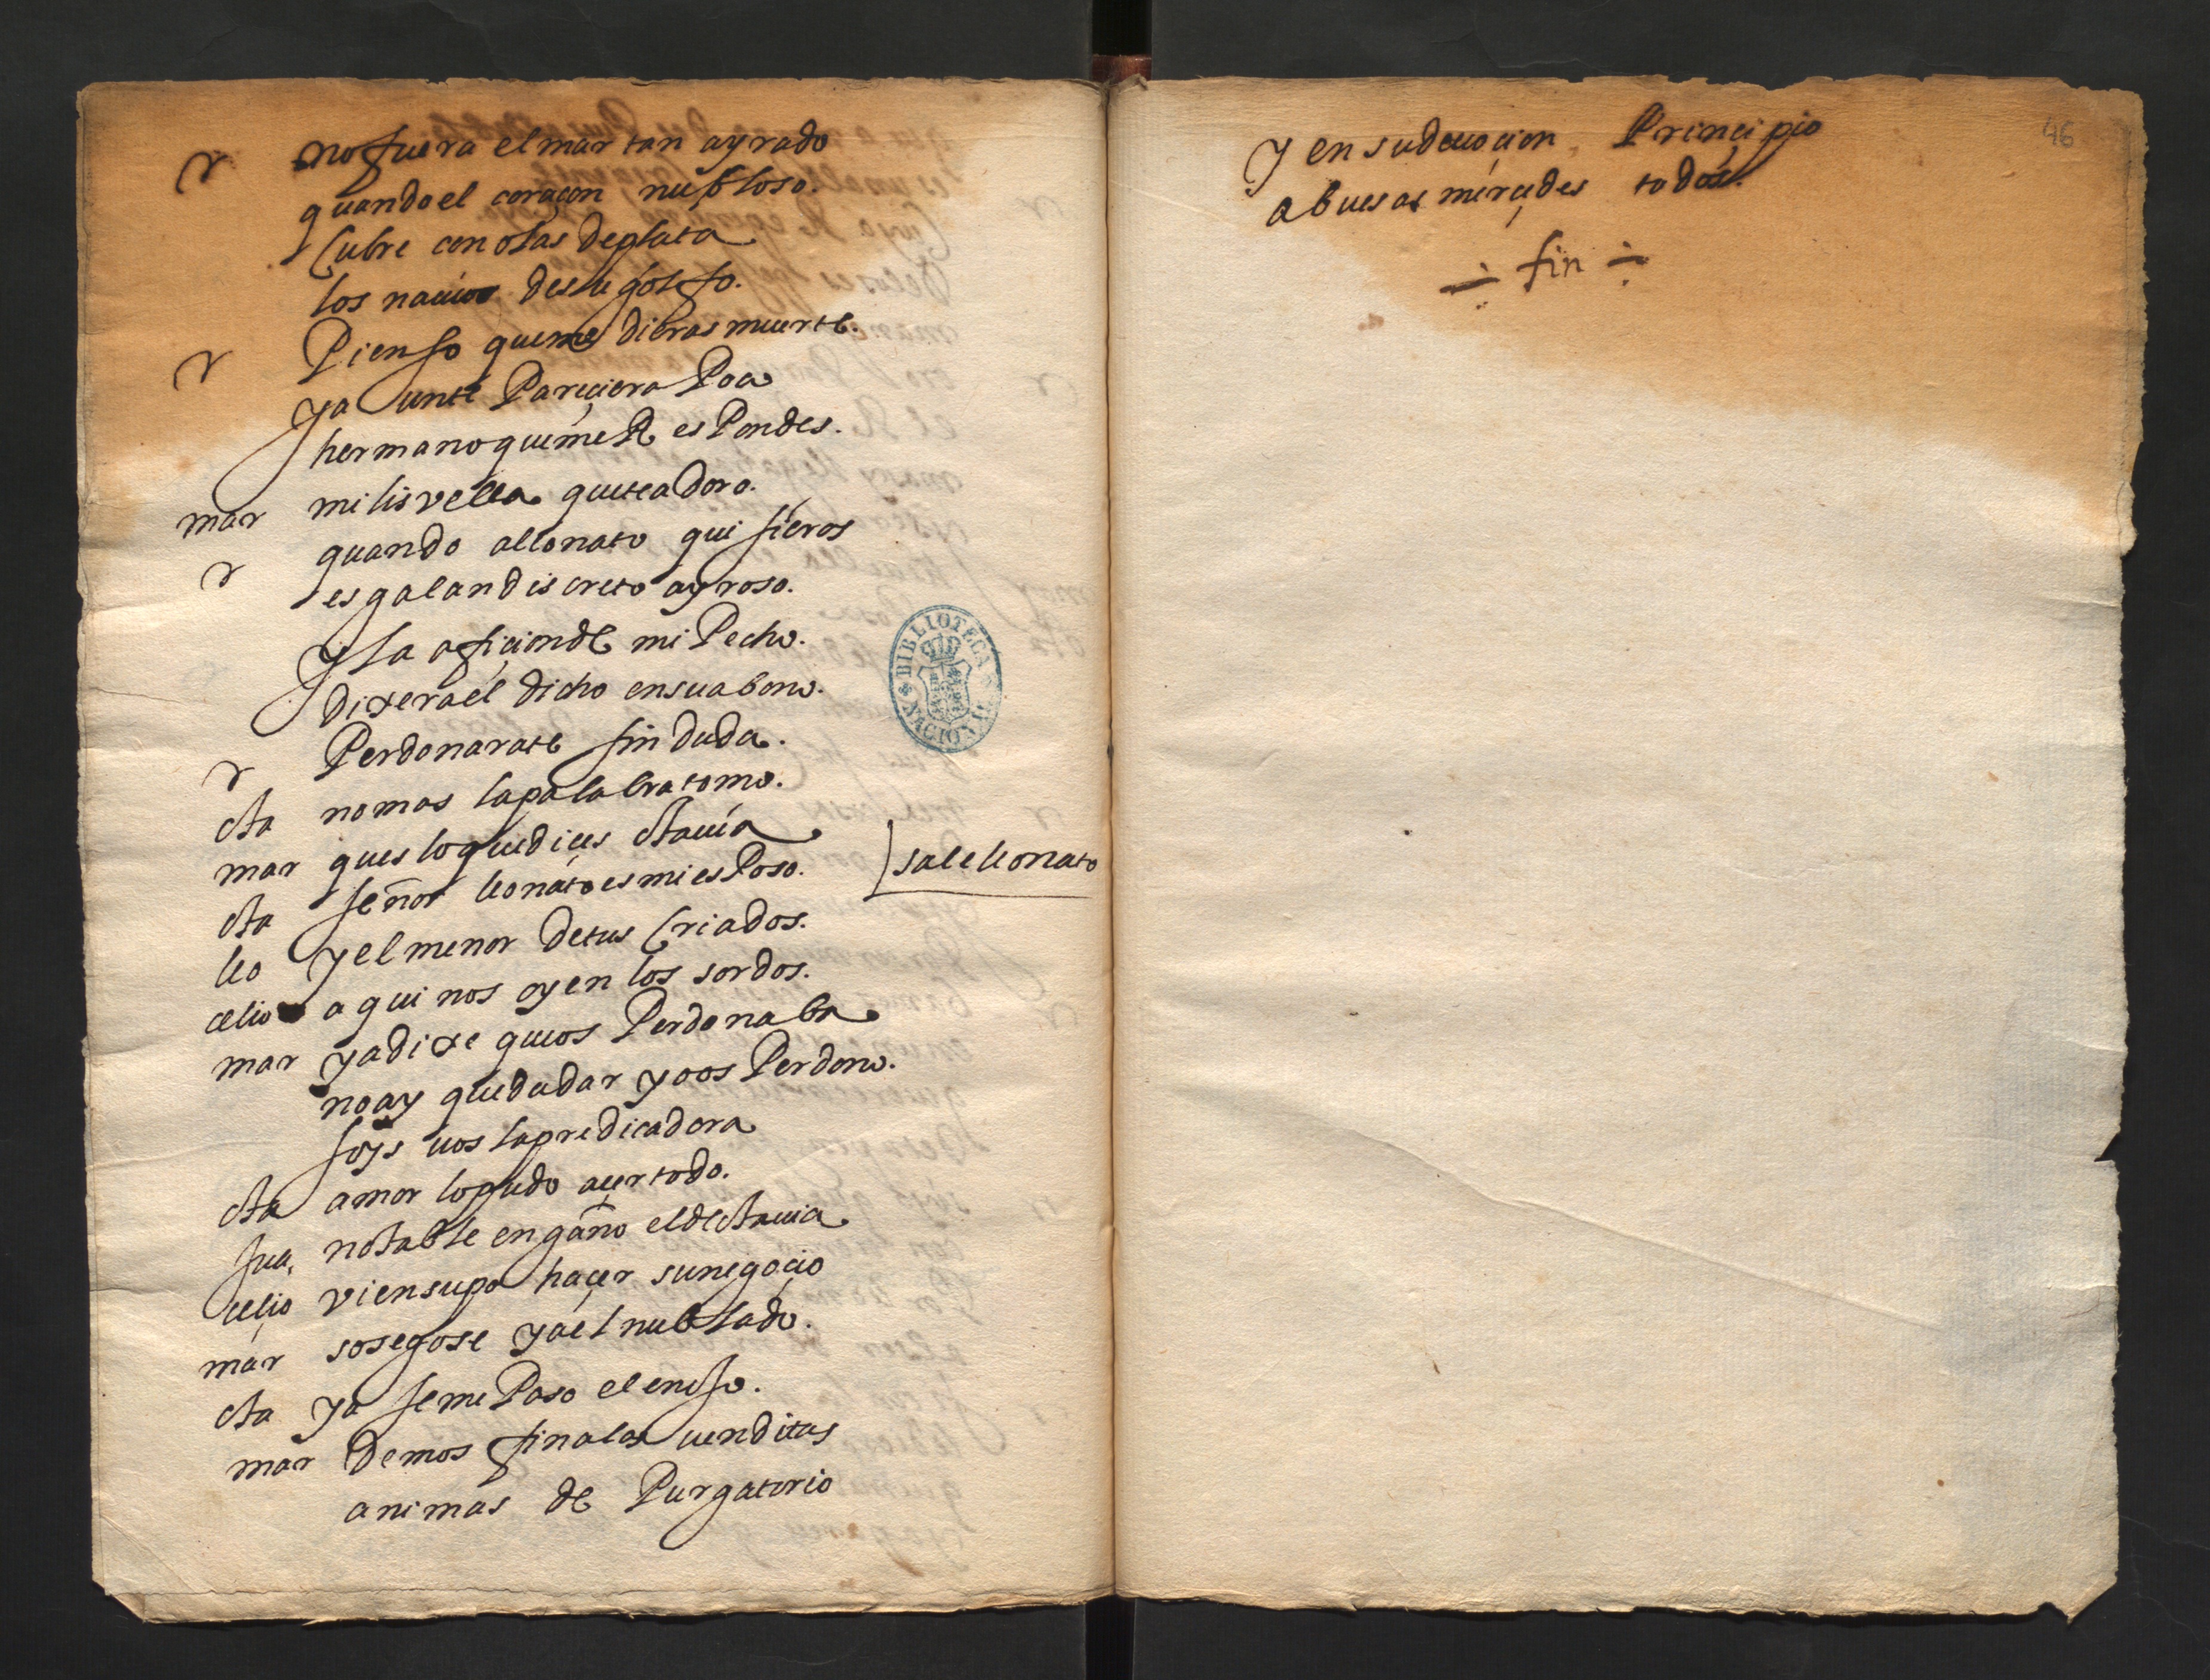 r no fuera el mar tan ayrado
quando el coraçon nubloso.
Cubre con olas de plata
los nauios de su golfo.
r Pienso que me dieras muerte.
y aun te Pareçiera Poca
hermano que me Respondes.
mar mi lisvella que te adoro.
r quando a leonato quisieras
es galan discreto ayroso.
y la afiçion de mi Pecho.
dixera el dicho en su abono.
r Perdonarate sin duda.
cta no mas la palabra tomo.
mar ques lo que diçes ctauia
cta señor leonato es mi esPoso.
sale leonato
leo y el menor de tus Criados.
celio aqui nos oyen los sordos.
mar ya dixe que os Perdonaba
no ay que dudar yo os Perdono.
soys uos la predicadora
cta amor lo pudo açer todo.
notable engaño el de ctauia
celio vien supo haçer su negoçio
mar sosegose ya el nublado.
cta ya se me Paso el enojo.
mar Demos fin a las venditas
animas de Purgatorio
46
y en su deuoçion Principio
a buesas merçedes todos.
fin
BIBLIOTECA NACIONAL